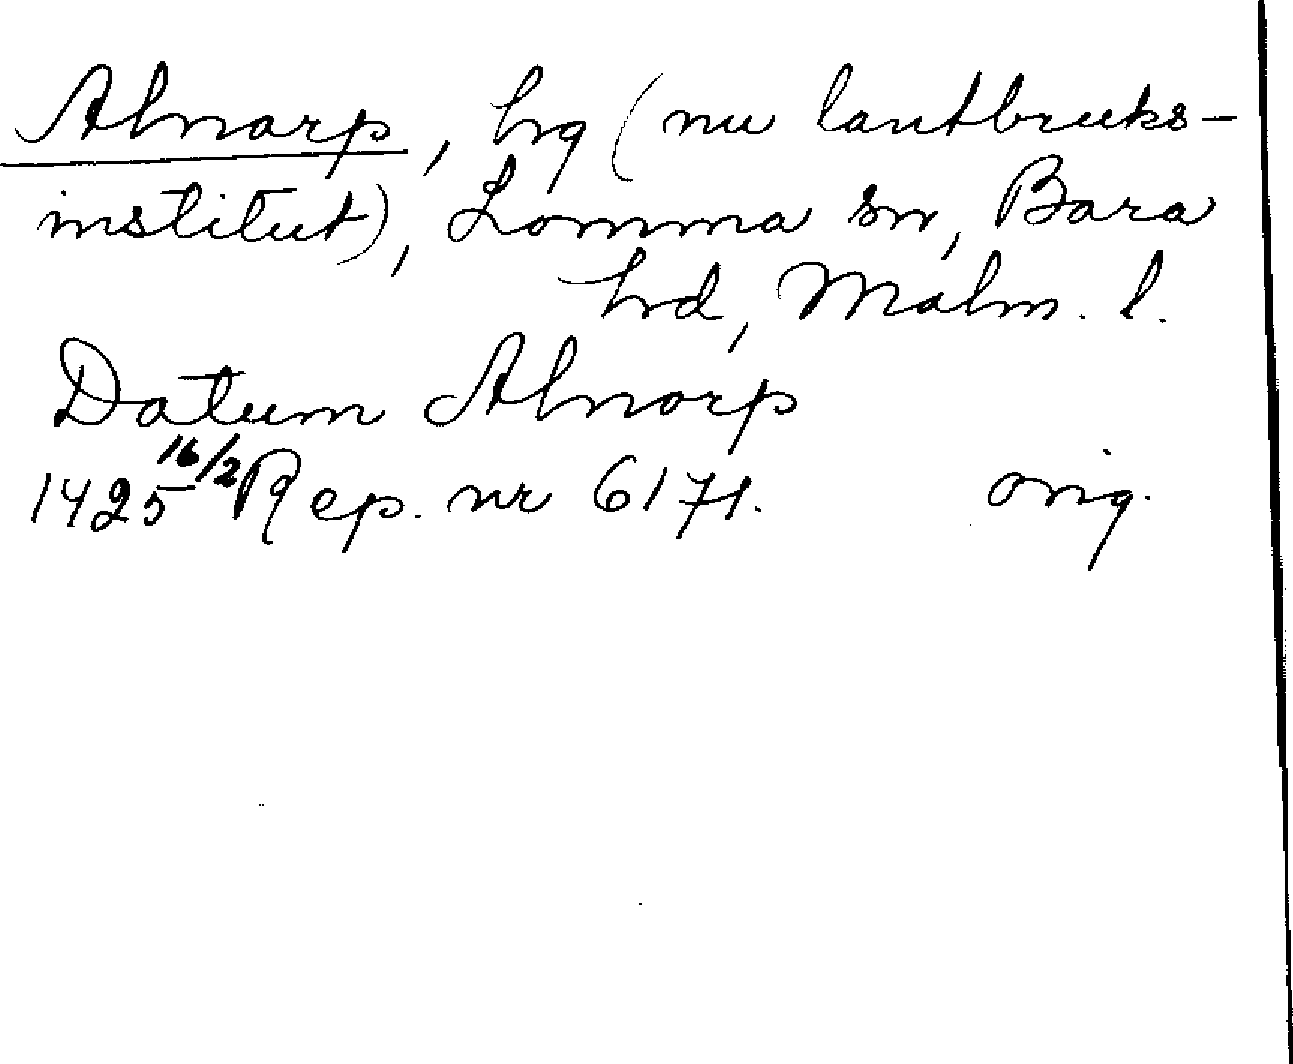 Alnarp, hrg (nu lantbruks-
institut), Lomma sn, Bara
hrd, Malm. l.
Datum Alnorp
1425 16/2 Rep. nr 6171. orig.